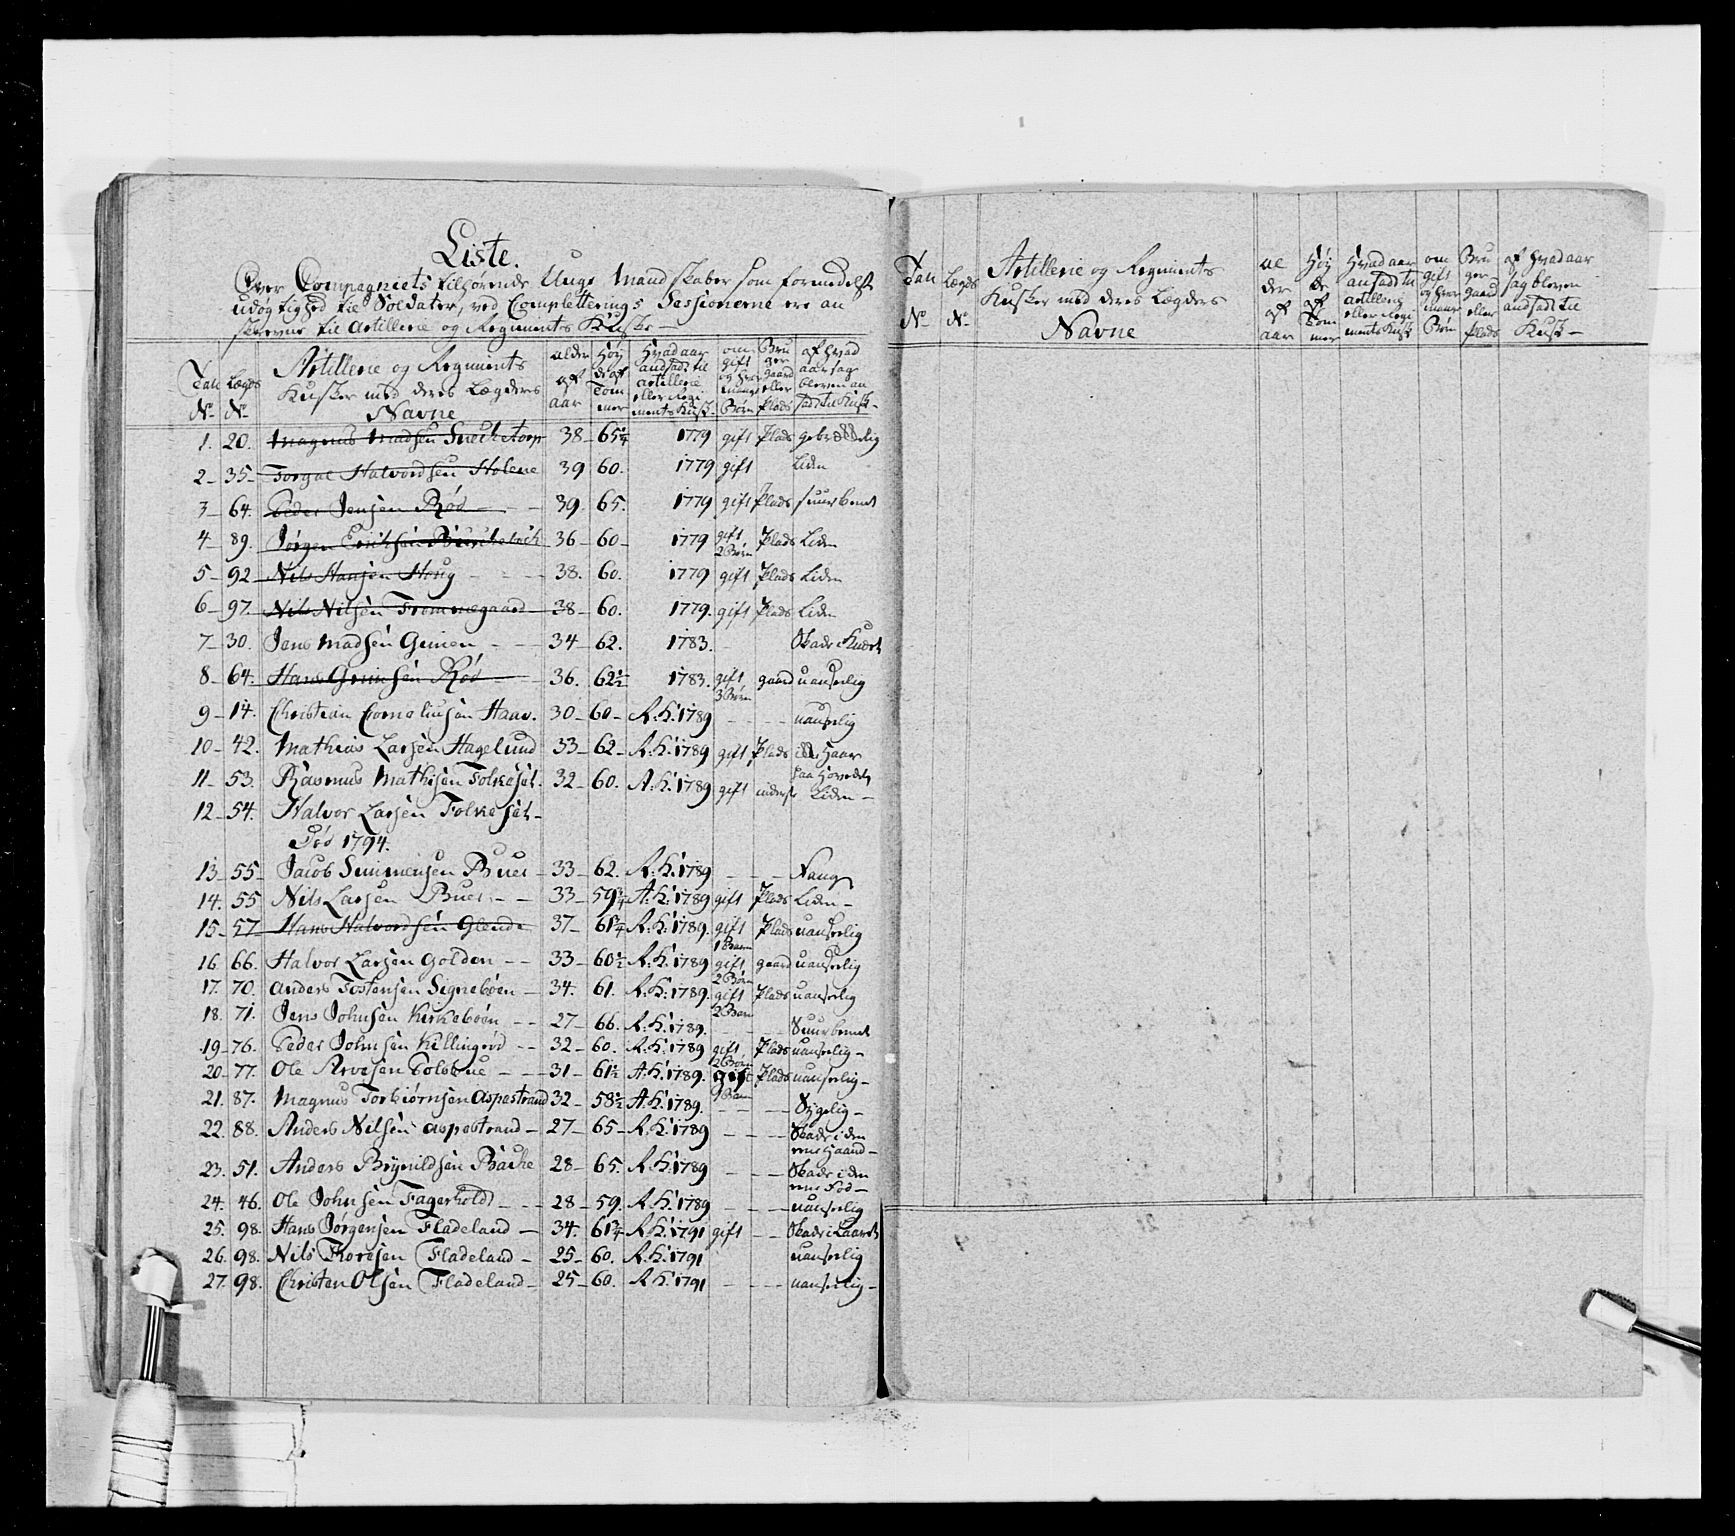 Liste.
Over Compagniets tilhørende Unge Mandskaber som formedelst
udøgtighed til Soldater, ved Completterings Sessionerne ere an
skrevne til Artillerie og Regiments Kuske —
Tall No Lægds No Artillerie og Regiments Kusker med deres Lægders Navne alder af aar Høyde af Tommer Hvad aar andsadt til artillerie eller Regiments Kusk om gift og hvor mange Børn Bruger gaard eller Plads af hvad aarsag bleven ansadt til Kusk
1. 20. Magnus Madsen Snecketorp 38 65¼ 1779 gift Plads gebræckelig
2 35 Torgal Halvordsen Holene 39 60. 1779 gift Liden
3 64. Peder Jensen Rød 39. 65. 1779 gift Plads Suurbenet
4 89. Jørgen Erichsen 36 60 1779 gift 2 Børn Plads Liden
5 92 Nils Hansen Houg 38. 60. 1779 gift Plads Liden
6 97. Nils Nilsen Frommegaard 38 60. 1779. gift Plads Liden
7 30. Jens Madsen 34 62. 1783. Skade i Knæet
8 64. Hans Grimsen Rød 36. 62½ 1783. gift 3 Børn gaard uanseelig
9 14. Christian Corneliusen Haav. 30 60 A: K: 1789 uanseelig
10 42. Mathias Larsen Hagelund 33 62 A: K: 1789 gift Plads Haar
paa Hovedet
11 53. Rasmus Mathisen Folkesət. 32 60. A: K: 1789 gift inderst Liden
12 54. Halvor Larsen Folkeset
Død 1794.
13 55 Jacob Simmensen Buer 33 62. A: K: 1789
14. 55 Nils Larsen Buer 33 59¾ A: K: 1789 gift Plads Liden
15 57 Hans Halvordsen Glende 37 61¼ A: K: 1789. gift 1 Barn Plads uanseelig
16 66. Halvor Larsen Golden 33 60½ A: K: 1789 gift 2 Børn gaard uanseelig
17. 70. Anders Tostensen Signebøen 34. 61. A: K: 1789. gift 2 Barn Plads uanseelig
18. 71. Jens Johnsen Kirkebøen 27 66. A: K: 1789. Suurbenet
19 76. Peder Johnsen Killingrød 32 60. A: K: 1789 gift 2 Børn Plads uanseelig
20 77. Ole Arvesen 31 61½ A: K: 1789. gift 1 Barn Plads uanseelig
21. 87. Magnus Torkiørnsen Aspestrand 32 58½ A: K: 1789. Sygelig
22. 88. Anders Nilsen Aspestrand 27 65 A: K: 1789 Skade i den
ene Haand
23. 51. Anders Brynildsen Backe 28 65. A: K: 1789 Skade i den
ene Fod
24. 46. Ole Johnsen Fagerhold 28 59. A: K: 1789 uanseelig
25. 98. Hans Jørgensen Fladeland 34. 61¾ A: K: 1791 gift Skade i Laaret
26. 98. Nils Thoresen Fladeland 25 60. A: K: 1791 uanseelig
27. 98. Christen Olsen Fladeland 25 60. A: K: 1791 uanseelig
Tall No Lægds No Artillerie og Regiments Kusker med deres Lægders Navne alder af aar Høyde af Tommer Hvad aar ansadt til artillerie eller Regiments Kusk om gift og hvor mange Børn Bruger gaard eller Plads af hvad aarsag bleven andsadt til Kusk